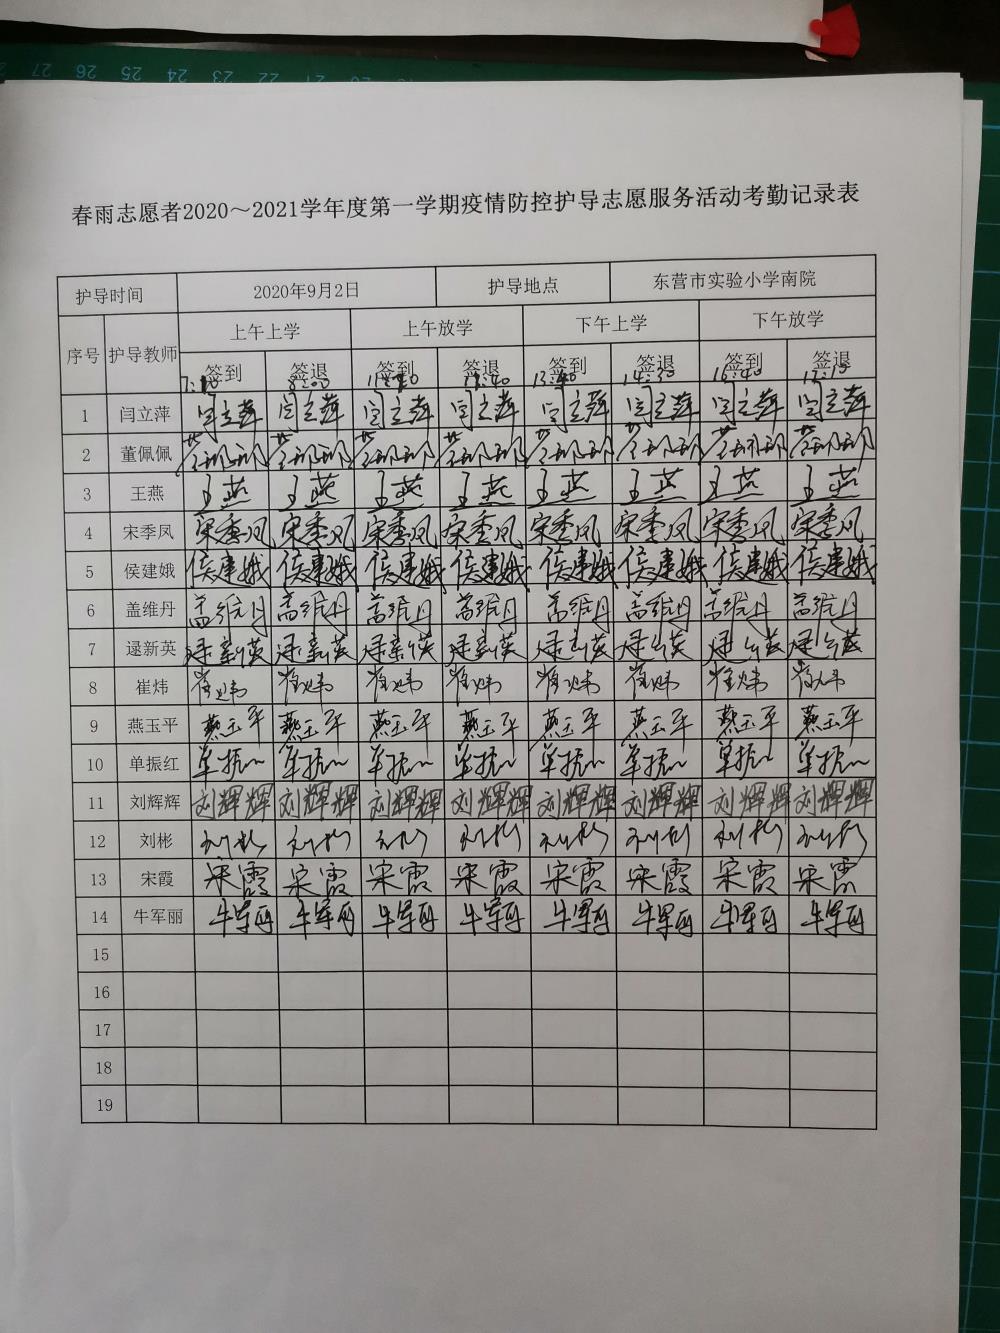 27 26 25 24 23 22 21
春雨志愿者2020～2021学年度第一学期疫情防控护导志愿服务活动考勤记录表
护导时间 2020年9月2日 护导地点 东营市实验小学南院
序号 护导教师 上午上学 上午放学 下午上学 下午放学
签到 签退 签到 签退 签到 签退 签到 签退
8:00 13:40 14:30 16:40
1 闫立萍 闫立萍 闫立萍 闫立萍 闫立萍 闫立萍 闫立萍 闫立萍 闫立萍
2 董佩佩 董佩佩 董佩佩 董佩佩 董佩佩 董佩佩 董佩佩 董佩佩 董佩佩
3 王燕 王燕 王燕 王燕 王燕 王燕 王燕 王燕 王燕
4 宋季凤 宋季凤 宋季凤 宋季凤 宋季凤 宋季凤 宋季凤 宋季凤 宋季凤
5 侯建娥 侯建娥 侯建娥 侯建娥 侯建娥 侯建娥 侯建娥 侯建娥 侯建娥
6 盖维丹 盖维丹 盖维丹 盖维丹 盖维丹 盖维丹 盖维丹 盖维丹 盖维丹
7 逯新英 逯新英 逯新英 逯新英 逯新英 逯新英 逯新英 逯新英 逯新英
8 崔炜 崔炜 崔炜 崔炜 崔炜 崔炜 崔炜 崔炜 崔炜
9 燕玉平 燕玉平 燕玉平 燕玉平 燕玉平 燕玉平 燕玉平 燕玉平 燕玉平
10 单振红 单振红 单振红 单振红 单振红 单振红 单振红 单振红 单振红
11 刘辉辉 刘辉辉 刘辉辉 刘辉辉 刘辉辉 刘辉辉 刘辉辉 刘辉辉 刘辉辉
12 刘彬 刘彬 刘彬 刘彬 刘彬 刘彬 刘彬 刘彬 刘彬
13 宋霞 宋霞 宋霞 宋霞 宋霞 宋霞 宋霞 宋霞 宋霞
14 牛军丽 牛军丽 牛军丽 牛军丽 牛军丽 牛军丽 牛军丽 牛军丽 牛军丽
15
16
17
18
19